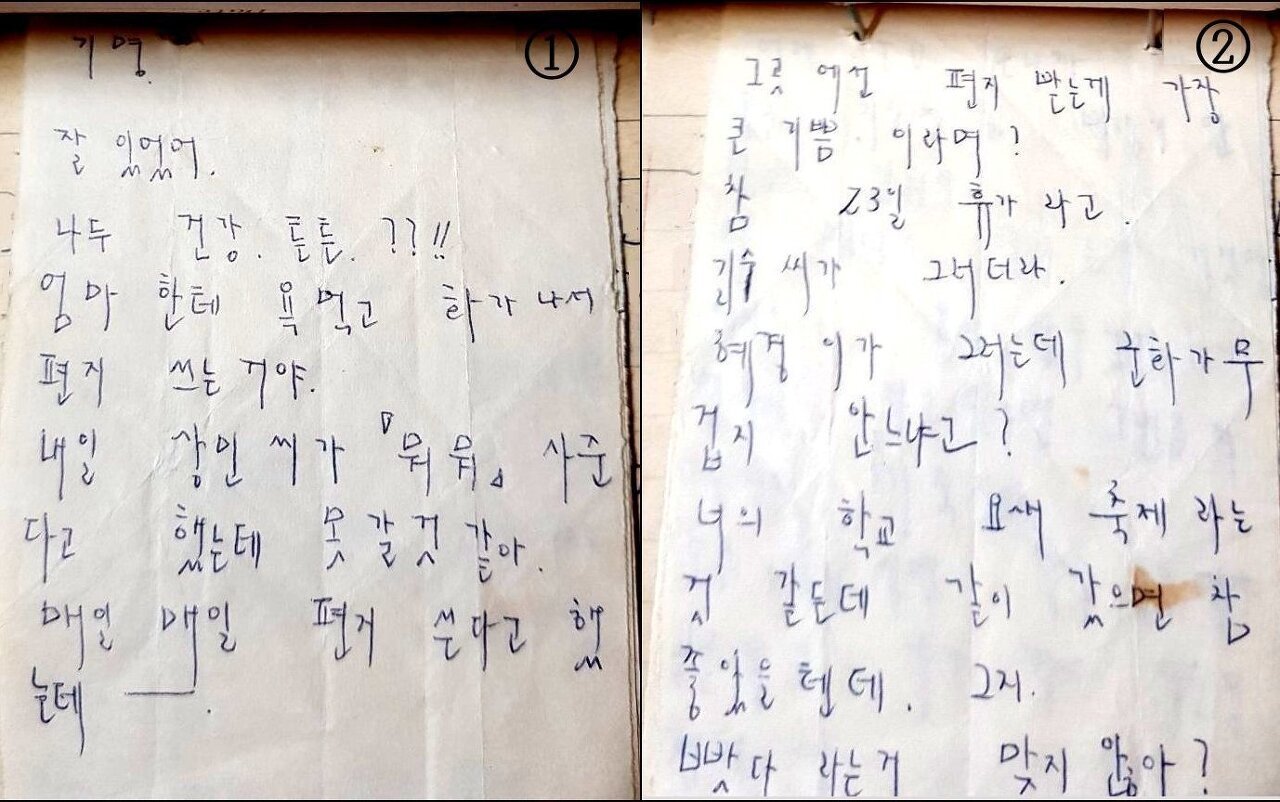 ①
기명.
잘 있었어.
나두 건강. 튼튼. ??!!
엄마 한테 욕먹고 화가 나서
편지 쓰는거야.
내일 상민 씨가 『뭐뭐』 사준
다고 했는데 못 갈것 같아.
매일 매일 편지 쓴다고 했
는데 ——.
②
그곳 에선 편지 받는게 가장
큰 기쁨 이라며?
참 23일 휴가 라고.
씨가 그러더라.
혜경 이가 그러는데 군화가 무
겁지 안느냐고?
너의 학교 요새 축제 라는
것 같든데 같이 갔으면 참
좋았을 텐데. 그지.
빴다 라는거 맞지 않아?